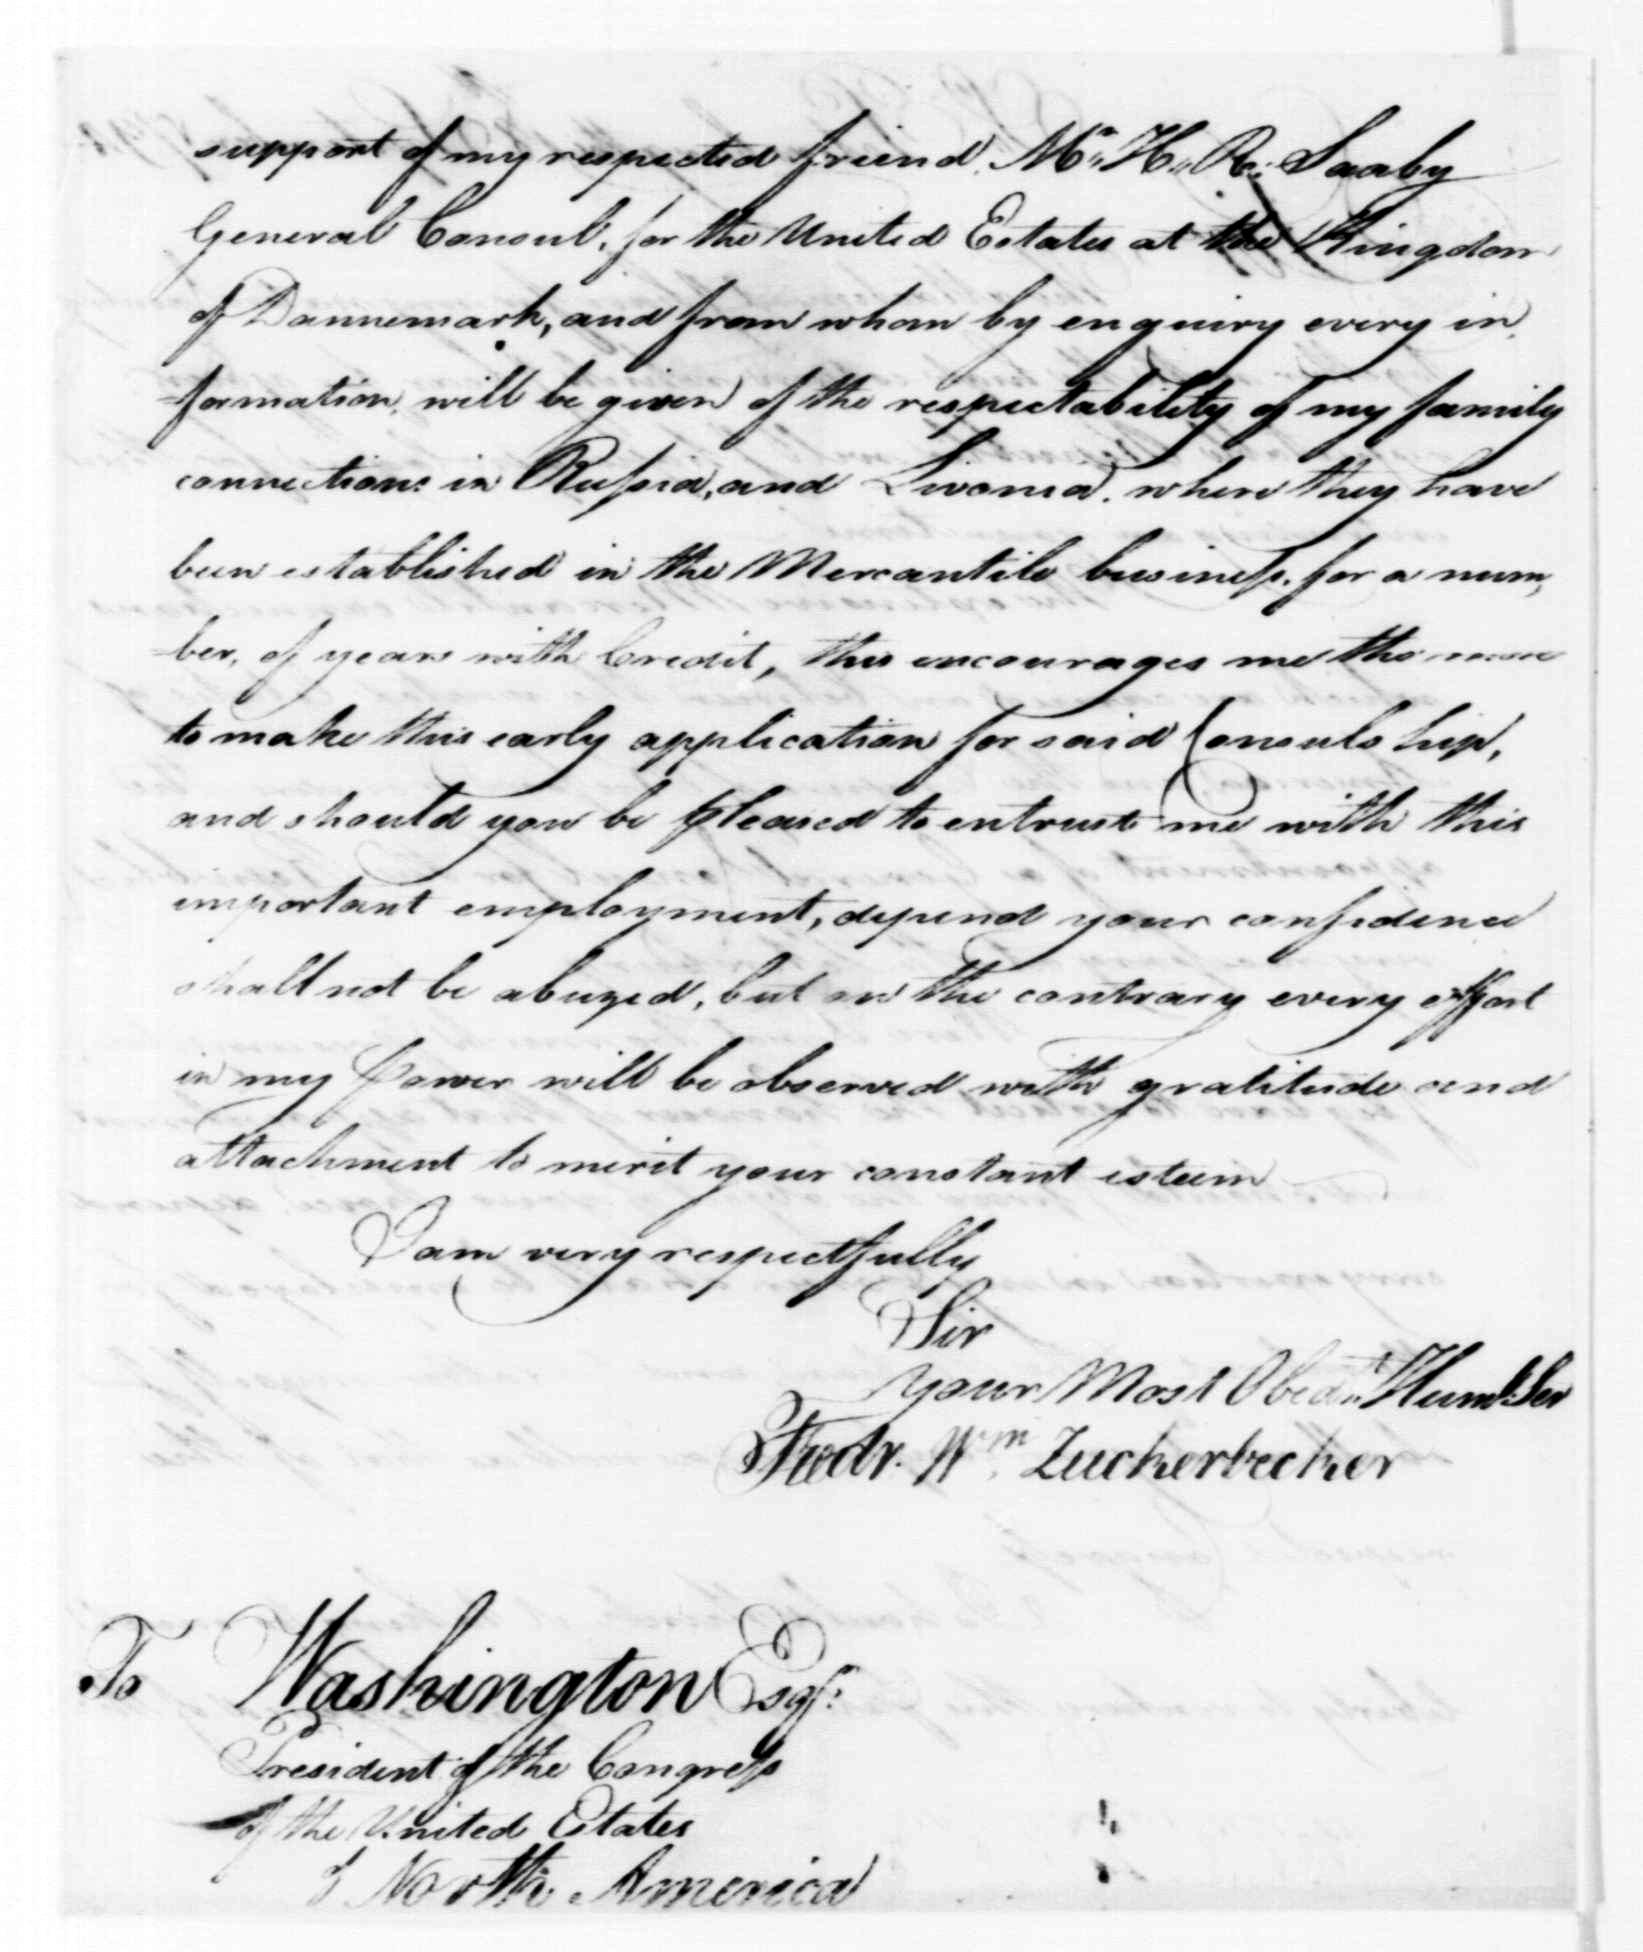 support of my respected friend, Mr. H. R. Saaby
General Consul, for the United Estates at the Kingdom
of Dannemark, and from whom by enquiry every in,
=formation, will be given of the respectability of my family
connections in Russia, and Livonia, where they have
been established in the Mercantile business, for a num,
=ber, of years with Credit, this encourages me the more
to make this early application for said Consulship,
and should you be pleased to entrust me with this
important employment, depend your confidence
shall not be abuzed, but on the contrary every effort
in my Power will be observed with gratitude and
attachment to merit your constant esteem
I am very respectfully
Sir
your Most Obedt. Humb. Ser
Fredr. Wm. Zuckerbecker
To Washington Esqr.
President of the Congress
of the United Estates
of North America